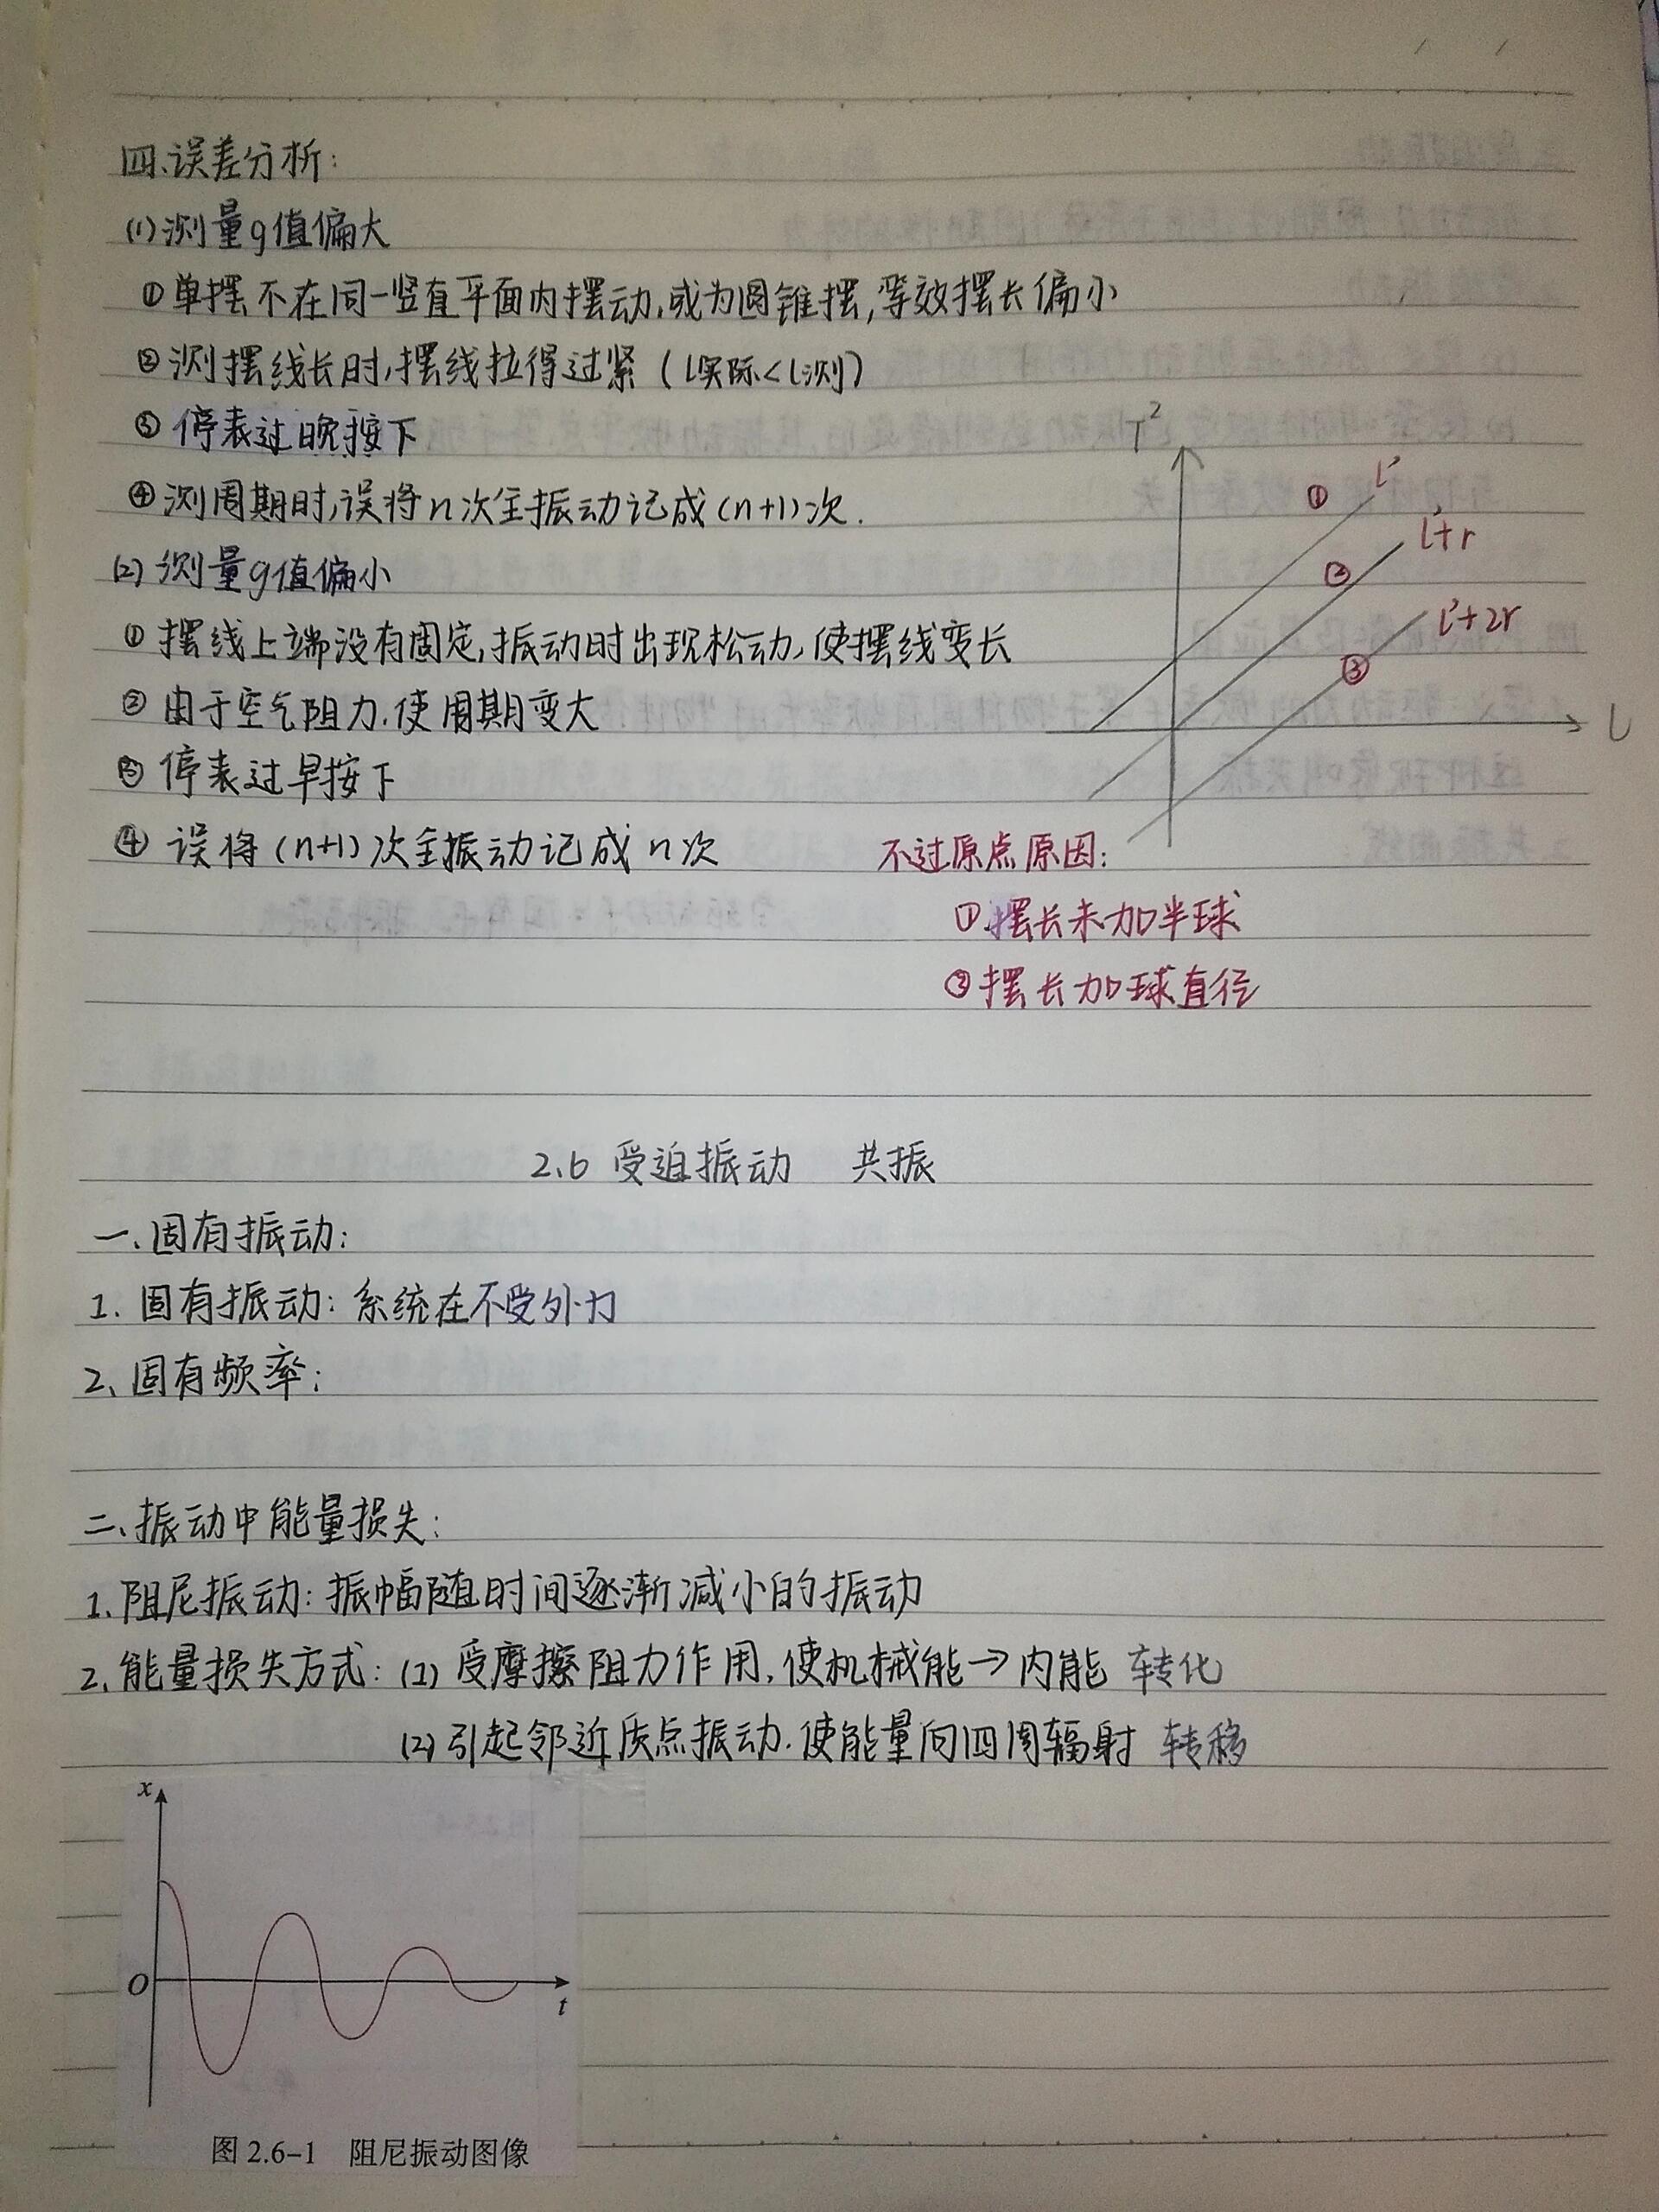 四、误差分析:
(1) 测量g值偏大
①单摆不在同一竖直平面内摆动,或为圆锥摆,等效摆长偏小
②测摆线长时,摆线拉得过紧(l实际<l测)
③停表过晚按下
④测周期时,误将n次全振动记成(n+1)次.
(2) 测量g值偏小
①摆线上端没有固定,振动时出现松动,使摆线变长
②由于空气阻力.使周期变大
③停表过早按下
④误将(n+1)次全振动记成n次
T²
① l'
② l'+r
③ l'+2r
l
不过原点原因:
①摆长未加半球
③摆长加球直径
2.6 受迫振动 共振
一、固有振动:
1. 固有振动:系统在不受外力
2、固有频率:
二、振动中能量损失:
1、阻尼振动:振幅随时间逐渐减小的振动
2、能量损失方式:(1) 受摩擦阻力作用,使机械能→内能 转化
(2) 引起邻近质点振动.使能量向四周辐射 转移
x
O
t
图 2.6-1 阻尼振动图像